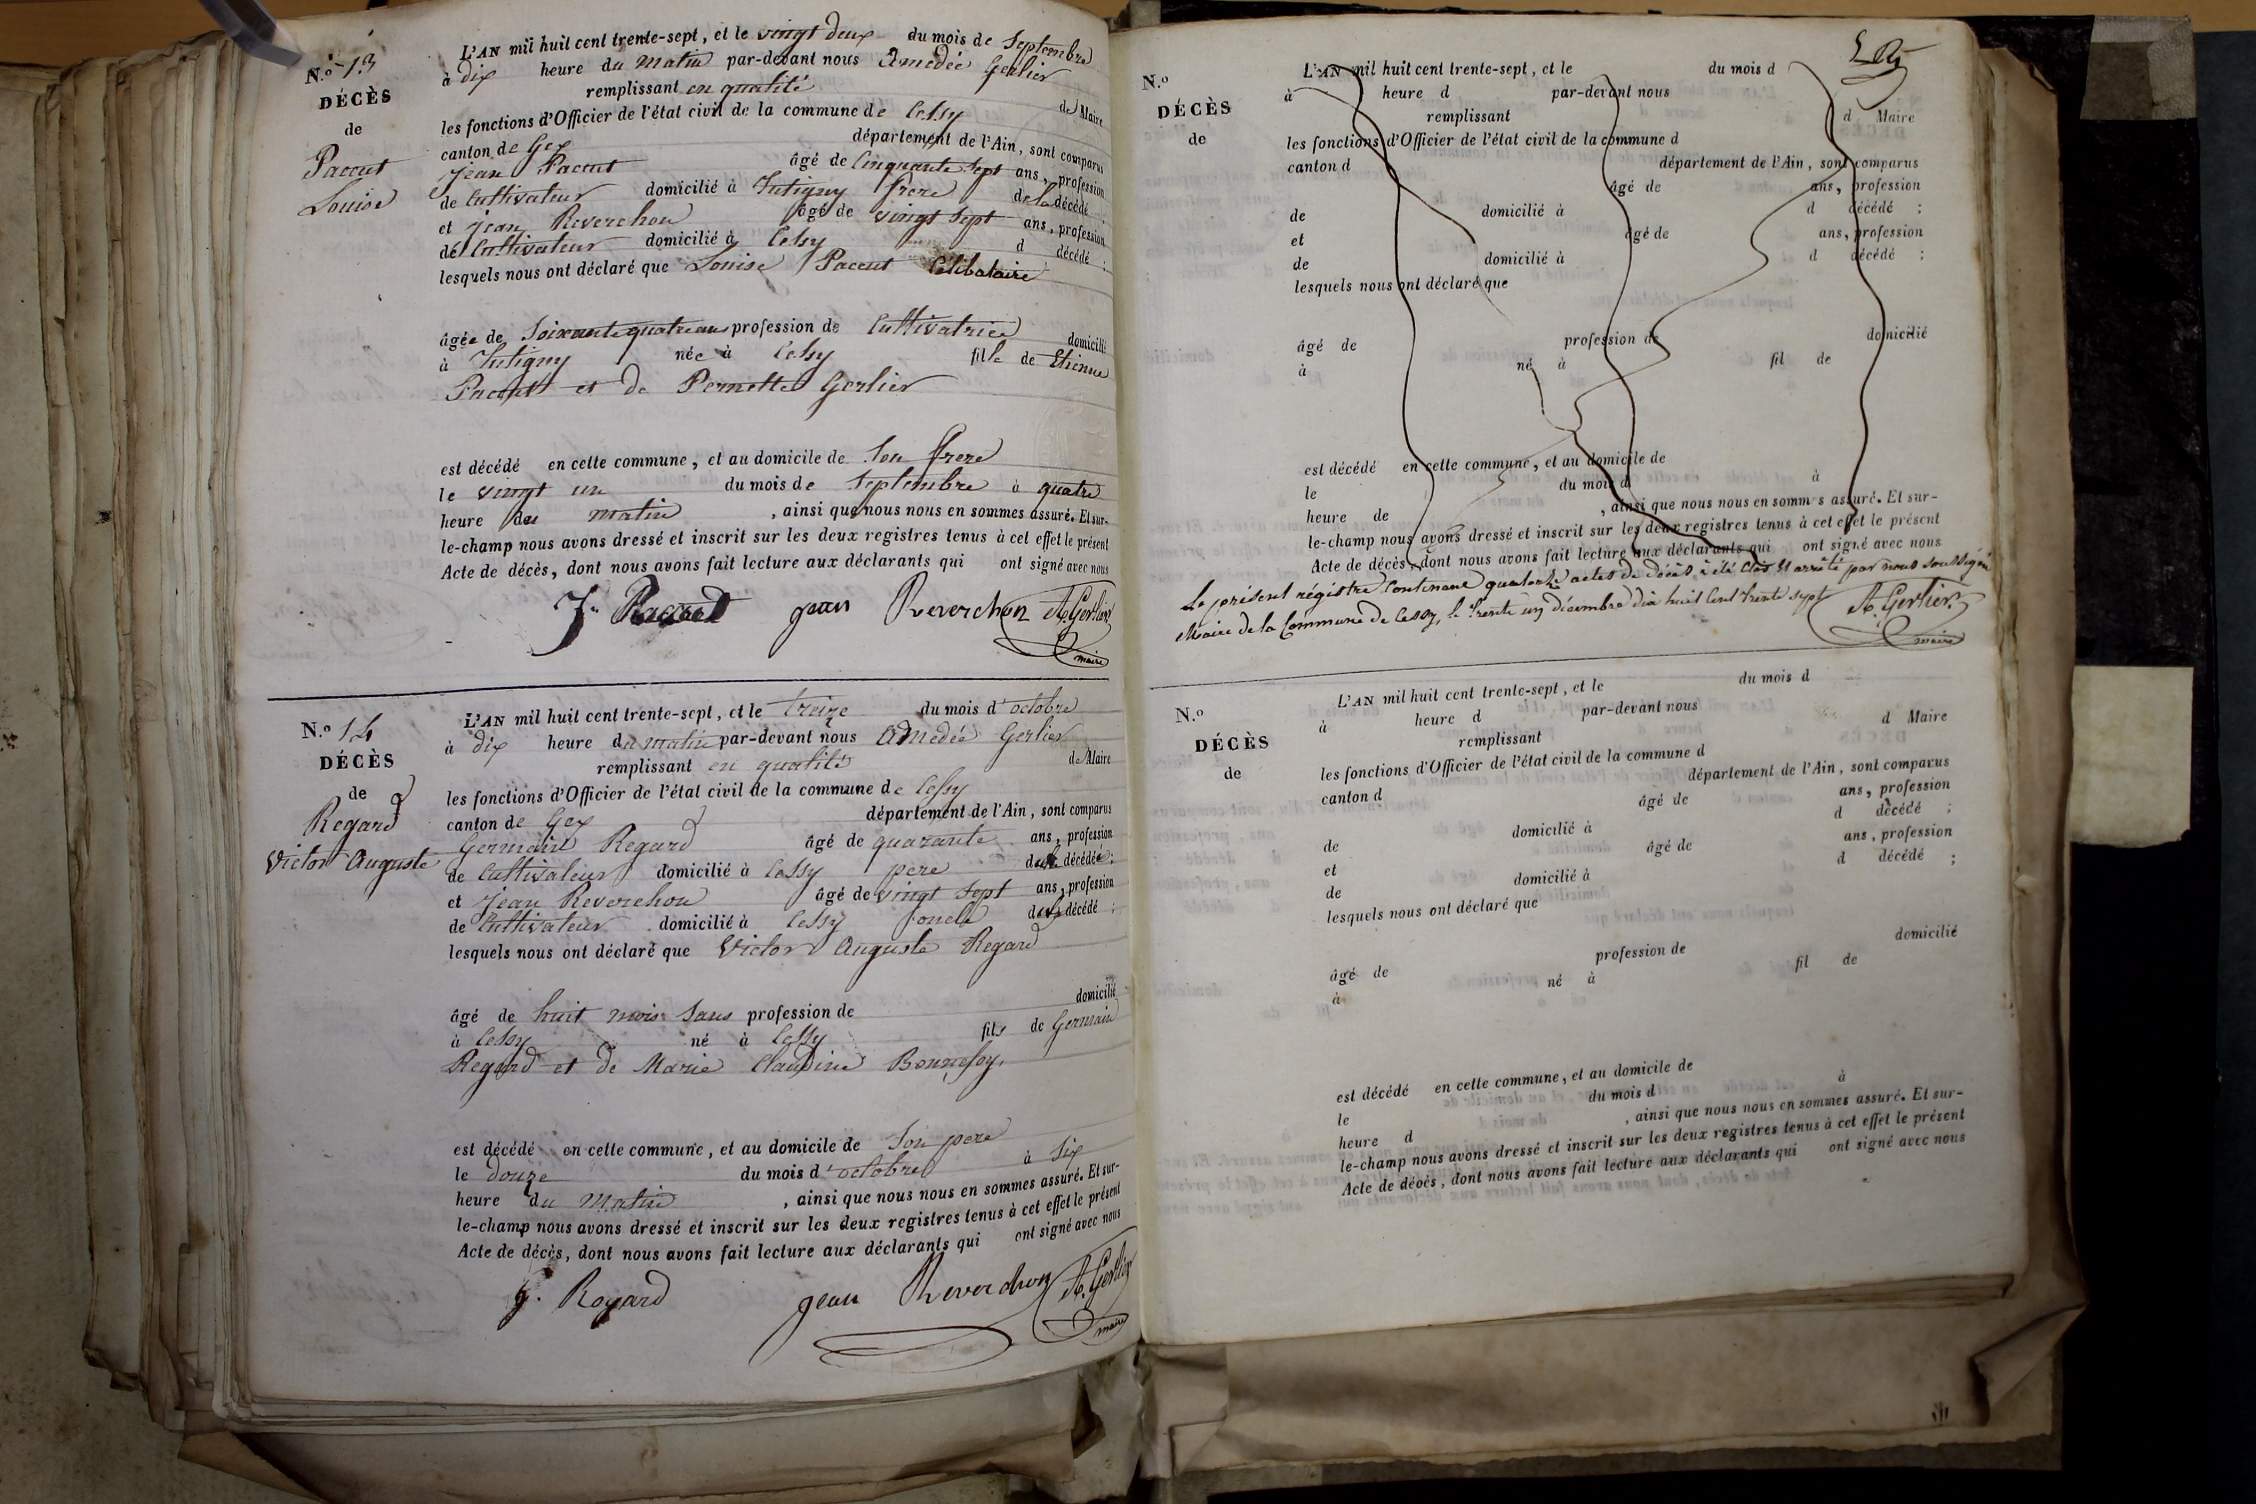 N.º 13
DÉCÈS
de
Paccut
Louise
L'AN mil huit cent trente-sept, et le vingt deux du mois de septembre
à dix heure du matin par-devant nous Amedée Gerlier
remplissant en qualité de Maire
les fonctions d'Officier de l'état civil de la commune de Cessy
canton de Gex département de l'Ain, sont comparus
Jean Paccut âgé de Cinquante sept ans, profession
de Cultivateur domicilié à Tutigny frere de la décédé ;
et jean Reverchon âgé de vingt sept ans, profession
de Cultivateur domicilié à Cessy d décédé ;
lesquels nous ont déclaré que Louise Paccut Célibataire
âgée de Soixante quatre ans profession de Cultivatrice domicilié
à Tutigny née à Cessy fille de Etienne
Paccut et de Pernette Gerlier
est décédé en cette commune, et au domicile de Son frere
le vingt un du mois de Septembre à quatre
heure du matin , ainsi que nous nous en sommes assuré. Et sur-
le-champ nous avons dressé et inscrit sur les deux registres tenus à cet effet le présent
Acte de décès, dont nous avons fait lecture aux déclarants qui ont signé avec nous
jean Reverchon A. Gerlier
maire
N.º 14
DÉCÈS
de
Regard
Victor Auguste
L'AN mil huit cent trente-sept, et le treize du mois d'octobre
à dix heure du matin par-devant nous Amedée Gerlier
remplissant en qualité de Maire
les fonctions d'Officier de l'état civil de la commune de Cessy
canton de Gex département de l'Ain, sont comparus
Germain Regard âgé de quarante ans, profession
de Cultivateur domicilié à Cessy pere décédé ;
et Jean Reverchon âgé de vingt sept ans, profession
de Cultivateur domicilié à Cessy oncle décédé ;
lesquels nous ont déclaré que Victor Auguste Regard
âgé de huit mois sans profession de domicilié
à Cessy né à Cessy fils de Germain
Regard et de Marie Claudine Bonnefoy.
est décédé en cette commune, et au domicile de Son pere
le douze du mois d'octobre à six
heure du matin , ainsi que nous nous en sommes assuré. Et sur-
le-champ nous avons dressé et inscrit sur les deux registres tenus à cet effet le présent
Acte de décès, dont nous avons fait lecture aux déclarants qui ont signé avec nous
g. Regard jean Reverchon A. Gerlier
maire
N.º
DÉCÈS
de
L'AN mil huit cent trente-sept, et le du mois d
à heure d par-devant nous
remplissant d Maire
les fonctions d'Officier de l'état civil de la commune d
canton d département de l'Ain, sont comparus
âgé de ans, profession
de domicilié à d décédé ;
et âgé de ans, profession
de domicilié à d décédé ;
lesquels nous ont déclaré que
âgé de profession de domicilié
à né à fil de
est décédé en cette commune, et au domicile de
le du mois d à
heure de , ainsi que nous nous en sommes assuré. Et sur-
le-champ nous avons dressé et inscrit sur les deux registres tenus à cet effet le présent
Acte de décès, dont nous avons fait lecture aux déclarants qui ont signé avec nous
Le présent régistre Contenant quatorze actes de décès à été clos et arrêté par nous soussigné
Maire de la Commune de Cessy, le trente un décembre dix huit Cent trente sept A. Gerlier
maire
N.º
DÉCÈS
de
L'AN mil huit cent trente-sept, et le du mois d
à heure d par-devant nous
remplissant d Maire
les fonctions d'Officier de l'état civil de la commune d
canton d département de l'Ain, sont comparus
âgé de ans, profession
de domicilié à d décédé ;
et âgé de ans, profession
de domicilié à d décédé ;
lesquels nous ont déclaré que
âgé de profession de domicilié
à né à fil de
est décédé en cette commune, et au domicile de
le du mois d à
heure d , ainsi que nous nous en sommes assuré. Et sur-
le-champ nous avons dressé et inscrit sur les deux registres tenus à cet effet le présent
Acte de décès, dont nous avons fait lecture aux déclarants qui ont signé avec nous